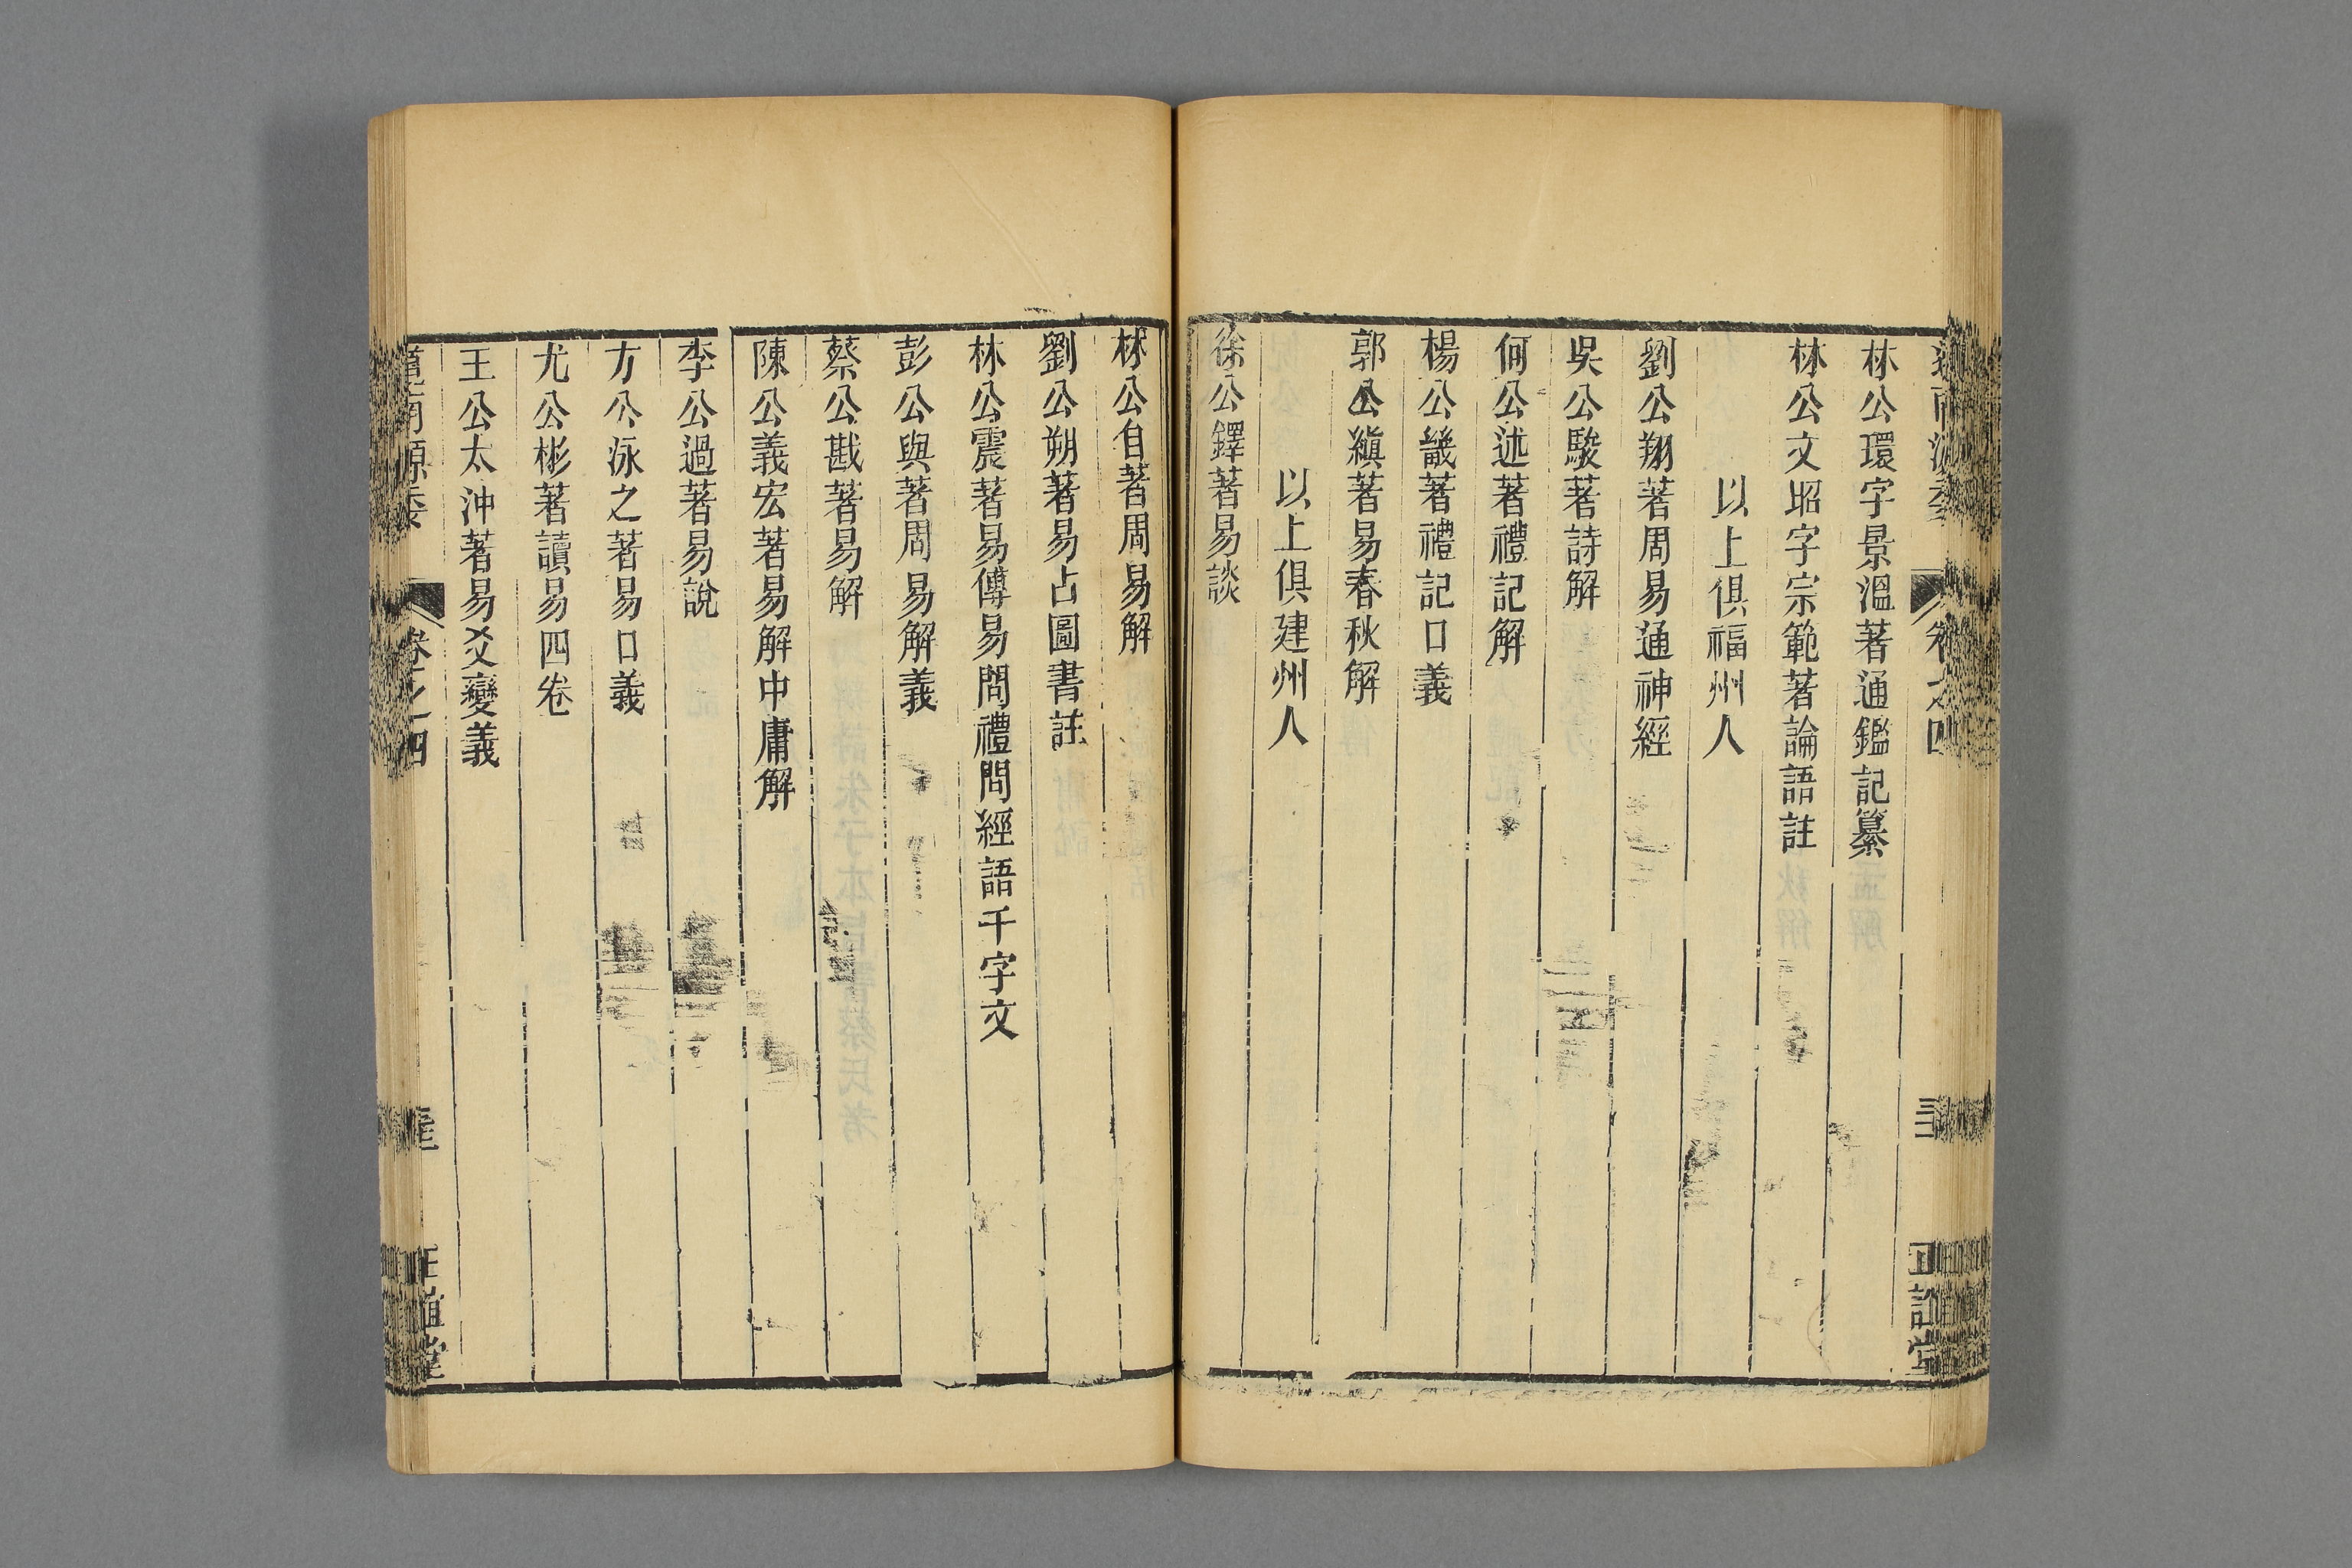 林公環字景溫著通鑑記纂
林公文昭字宗範著論語註
以上俱福州人
劉公翔著周易通神經
吳公駿著詩解
何公述著禮記解
楊公畿著禮記口義
郭公縝著易春秋解
以上俱建州人
徐公鐸著易談
林公自著周易解
劉公朔著易占圖書註
林公震著易傳易問禮問經語千字文
彭公與著周易解義
蔡公戡著易解
陳公義宏著易解中庸解
李公過著易說
方公泳之著易口義
尤公彬著讀易四卷
王公太沖著易爻變義
道南源委
卷之四
正誼堂